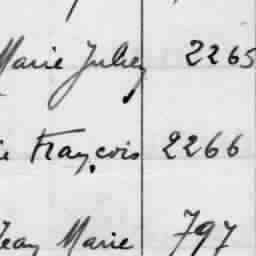 Marie Julien 2265
ie François 2266
Jean Marie 797